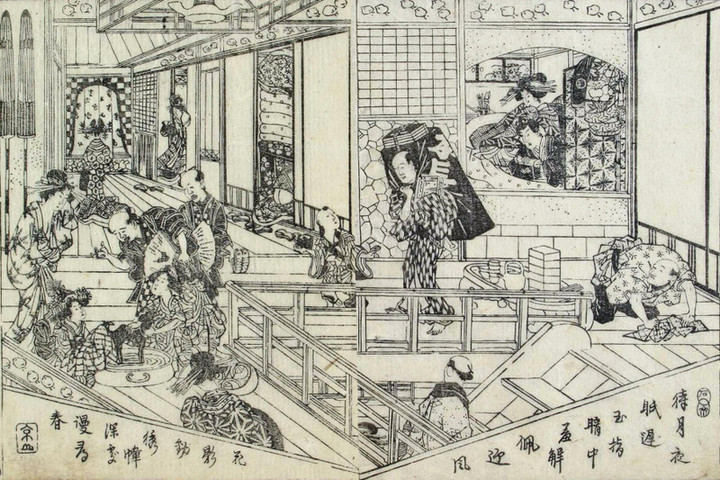 待月夜
眠遅
玉指
暗中
解
佩
迎
風
花
影
動
綉
幃
深處
漫
春
京山